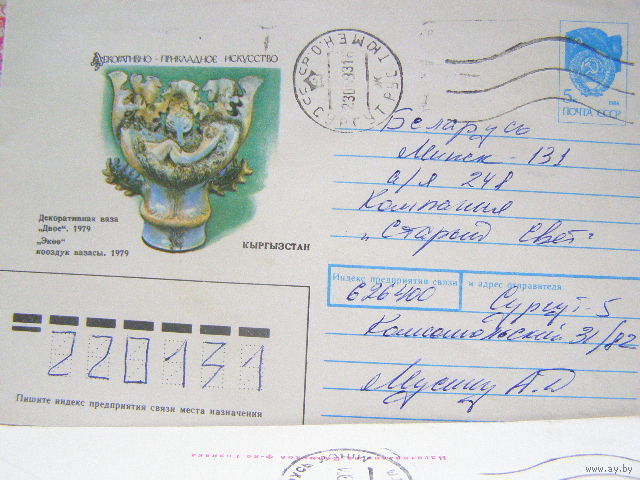 Декоративно - прикладное искусство
Декоративная ваза
„Двое“. 1979
„Экөө“
кооздук вазасы. 1979
КЫРГЫЗСТАН
5к
ПОЧТА СССР
Беларусь
Минск - 131
а/я 248
Компания
„Старый Свет“
Индекс предприятия связи и адрес отправителя
626400 Сургут-5
Комсомольский 31/82
220131
Пишите индекс предприятия связи места назначения
www.ay.by